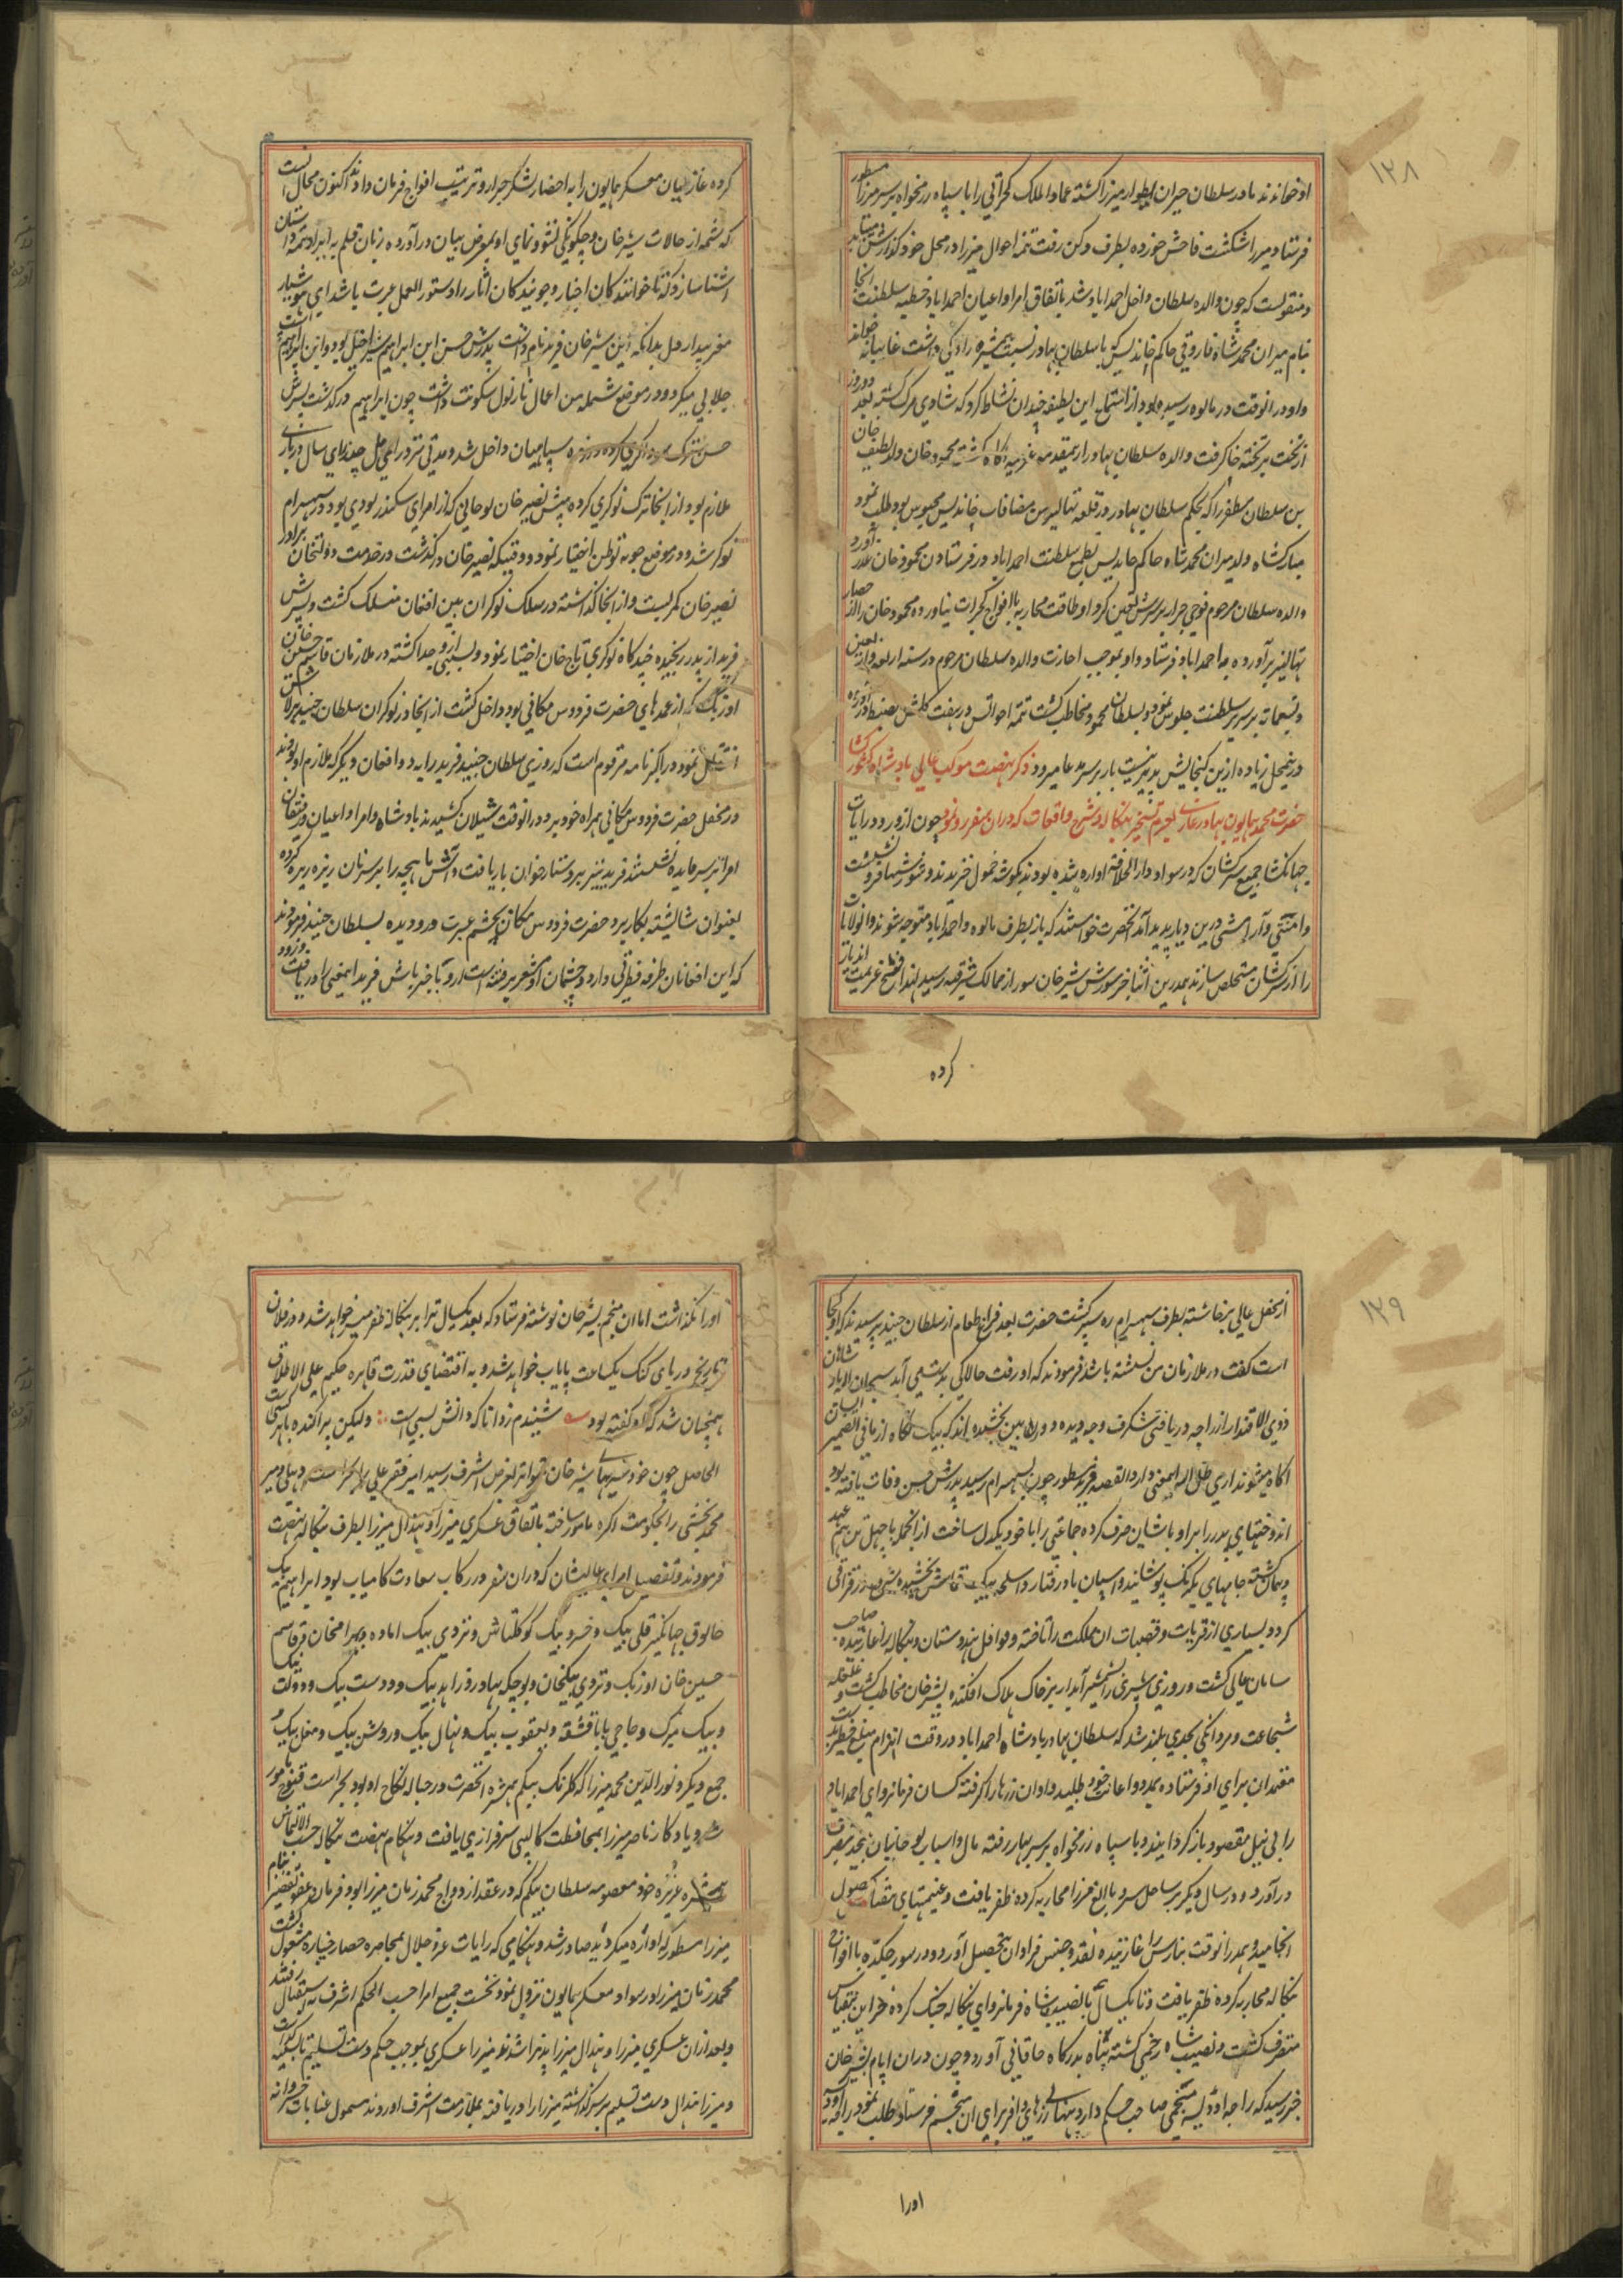 ۱۲۸
او خواندند مادر سلطان حیران اطوار میرزا گشته عماد الملک کجراتی را با سپاه رزمخواه بر سر میرزا مسطور
فرستاد میرزا شکست فاحش خورده بطرف دکن رفت تتمه احوال میرزا در محل خود گذارش
و منقولست که چون والده سلطان داخل احمداباد شد باتفاق امرا و اعیان احمداباد خطبه سلطنت انجا
بنام میران محمد شاه فاروقی حاکم خاندیس که با سلطان بهادر نسبت همشیره زادگی داشت غایبانه
و او در انوقت در مالوه رسیده بود از استماع این لطیفه چندان نشاط کرد که شادی مرک گشته بعد دو روز
از تخت بر تخته خاک رفت والده سلطان بهادر از محمود خان ولد لطیف خان
بن سلطان مظفر را که بحکم سلطان بهادر در قلعه تهالیر من مضافات خاندیس محبوس بود طلب نمود
مبارکشاه ولد میران محمد شاه حاکم خاندیس بطمع سلطنت احمداباد در فرستادن محمود خان عذر آورد
والده سلطان مرحوم فوجی جرار بر سرش تعین کرد او طاقت محاربه با افواج کجرات نیاورده محمود خان را از حصار
تهالنیر برآورده به احمداباد فرستاد و او بموجب اجازت والده سلطان مرحوم در سنه اربعه و اربعین
و تسعمائة بر سریر سلطنت جلوس نمود و بسلطان محمود مخاطب گشت تتمه احوالش در هفت کلشن بضبط درآورده
درینمحل زیاده ازین کنجایش پذیر نیست باز بر سر مدعا میرود ذکر نهضت موکب عالی بادشاه کشور کشا
حضرت محمد همایون بهادر غازی بعزم تسخیر بنکاله و شرح واقعات که دران سفر رو نمود چون از ورود رایات
جهانکشا جمیع سرکشان که در سواد دار الخلافه اواره شده بودند بکوشه خمول خزیدند و شورشها فرو نشست
و امنیتی و آرامشی درین دیار پدید آمد انحضرت خواستند که باز بطرف مالوه و احمداباد متوجه شوند و انولایات
را از سرکشان مستخلص سازند بهمدرین اثنا خبر شورش شیر خان سور از ممالک شرقیه رسید لهذا فسخ عزیمت
کرده
کرده غازیان معسکر همایون را به احضار لشکر جرار و ترتیب افواج فرمان دادند اکنون محال انست
که شمه از حالات شیر خان و چکونکی نشو و نمای او بمعرض بیان درآورده زبان قلم به ایراد تتمه داستان
اشنا سازد که تا خوانندکان اخبار و جویندکان اثار را دستور العمل عبرت باشد ای هوشیار
مغز بیدار دل بدانکه این شیر خان فرید نام داشت پدرش حسن ابن ابراهیم شیراخیل بود و این ابراهیم است
جلابی میکرد و در موضع شمله من اعمال نارنول سکونت داشت چون ابراهیم درکذشت پسرش
حسن ترک سوداکری کرده در زمره سپاهیان داخل شد و مدتی نزد رایمل چندی سال
ملازم بود از انجا ترک نوکری کرده پیش نصیر خان لوحانی که از امرای سکندر لودی بود در سهسرام
نوکر شد و در موضع جونه توطن اختیار نمود و وقتیکه نصیر خان درکذشت در خدمت دولتخان برادر
نصیر خان کمر بست و از انجا گذاشته در سلک نوکران ببن افغان منسلک گشت و پسرش
فرید از پدر رنجیده چند کاه نوکری تاج خان اختیار نمود و بسببی از و جدا گشته در ملازمان قاسم حسین خان
اوزبک که از عمدهای حضرت فردوس مکانی بود داخل گشت از انجا در نوکران سلطان جنید برلاس
انتقال نمود در اکبرنامه مرقوم است که روزی سلطان جنید فرید را به دو افغان دیکر که ملازم او بودند
در محفل حضرت فردوس مکانی همراه خود برد در انوقت شیلان کشیدند بادشاه و امرا و اعیان و رفیقان
امرا بر سر مایده نشستند فرید نیز بر دستارخوان بار یافت و آش ماهیچه را بر سر نان ریزه ریزه کرده
بعنوان شایسته بکار برد حضرت فردوس مکانی بچشم عبرت در و دیده بسلطان جنید فرمودند
که این افغانان طرفه فطرتی دارد و چشمان او مشعر بر فتنه است فرید اینمعنی را دریافت
۱۲۹
از محفل عالی برخاسته بطرف سهسرام ره سپر گشت حضرت بعد فراغ طعام از سلطان جنید پرسیدند که او کجا
است گفت در ملازمان من نشسته باشد فرمودند که او رفت حالا کی بدستمی آید سبحان الله
ذوی الاقتدار را چه دریافتی شکرف و چه دیده دوربین بخشیده اند که بیک نکاه از مافی الضمیر انسان
اکاه میشوند آری ظل اله اینمعنی دارد القصه فرید مسطور چون به سهسرام رسید پدرش حسن وفات یافته بود
اندوختهای پدر را بر اوباشان صرف کرده جماعتی را با خود یکدل ساخت از انجمله با چهل تن هم عهد
و پیمان گشته جامهای یکرنک پوشانید و اسپان بادرفتار و اسلحه یک قماش بخشیده شروع در قزاقی
کرد و بسیاری از قریات و قصبات ان مملکت را تاخته و قوافل هندوستان و بنکاله را غارتیده صاحب
سامان عالی گشت و روزی شیری را بشمشیر آبدار بر خاک هلاک افکنده بشیر خان مخاطب گشت و غلغله
شجاعت و مردانکی بحدی بلند شد که سلطان بهادر بادشاه احمداباد در وقت انهزام مبلغ خطیر بدست
معتمدان برای او فرستاده بمدد و اعانت خود طلبید و او ان زرها را گرفته کسان فرمانروای احمداباد
را بی نیل مقصود باز کردانید و با سپاه رزمخواه بر سر بهار رفته مال و اسباب لوحانیان بتحت تصرف
درآورد و در سال دیکر بر ساحل سرو با الغ میرزا محاربه کرده ظفر یافت و غنیمتهای بیقیاس بحصول
انجامید و بهمدر انوقت بنارس را غارتیده نقد و جنس فراوان بتحصیل آورد و در سورجکده با افواج
بنکاله محاربه کرده ظفر یافت و تا یکسال با نصیب شاه فرمانروای بنکاله جنک کرده خزاین بیقیاس
متصرف گشت و نصیب شاه زخمی گشته پناه بدرکاه خاقانی آورد و چون دران ایام بشیر خان
خبر رسید که راجه اودیسه منجمی صاحب حکم دارد پنهانی زرهای وافر برای ان منجم فرستاد طلب نمود راجه اودیسه
اورا
اورا نکذاشت اما ان منجم بشیر خان نوشته فرستاد که بعد یکسال ترا بر بنکاله ظفر میسر خواهد شد و در فلان
تاریخ دریای کنک یکساعت پایاب خواهد شد و به اقتضای قدرت قاهره حکیم علی الاطلاق
همچنان شد که او گفته بود شنیدم ز دانا که دانش بسی است ولیکن پراکنده با هر کسی است
الحاصل چون خودسریهای شیر خان بتواتر بعرض اشرف رسید امیر فقر علی را بحراست دهلی و میر
محمد بخشی را بحکومت اکره مامور ساخته باتفاق عسکری میرزا و هندال میرزا بطرف بنکاله نهضت
فرمودند و تفصیل امرای عالیشان که دران سفر در رکاب سعادت کامیاب بود ابراهیم بیک
جابوق جهانکیر قلی بیک و خسرو بیک کوکلتاش و تردی بیک اماده و بیرامخان قاسم
حسین خان اوزبک و تردی بیکخان و بوچکه بهادر و زاهد بیک و دوست بیک و دولت بیک
و بیک میرک و حاجی بابا قشقه و یعقوب بیک و نهال بیک و روشن بیک و مغل بیک و
جمع دیکر و نور الدین محمد میرزا که گلرنک بیکم همشیره انحضرت در حباله نکاح او بود بحراست قنوج مامور
شد و یادکار ناصر میرزا بمحافظت کالپی سرفرازی یافت و هنکام نهضت بنکاله حسب الالتماس
همشیره عزیزه خود معصومه سلطان بیکم که در عقد ازدواج محمد زمان میرزا بود فرمان عفو تقصیر بنام
میرزا مسطور که اوازه میکردید صادر شد و هنکامی که رایات عز و جلال بمحاصره حصار چناره مشغول گشت
محمد زمان میرزا در سواد معسکر همایون نزول نمود نخست جمیع امرا حسب الحکم اشرف به استقبال رفتند
و بعد ازان عسکری میرزا و هندال میرزا پذیرا شدند میرزا عسکری بموجب حکم دست تسلیم تا بسینه
و میرزا هندال دست تسلیم بر سر گذاشته میرزا را دریافته بملازمت اشرف اوردند مشمول عنایات خسروانه